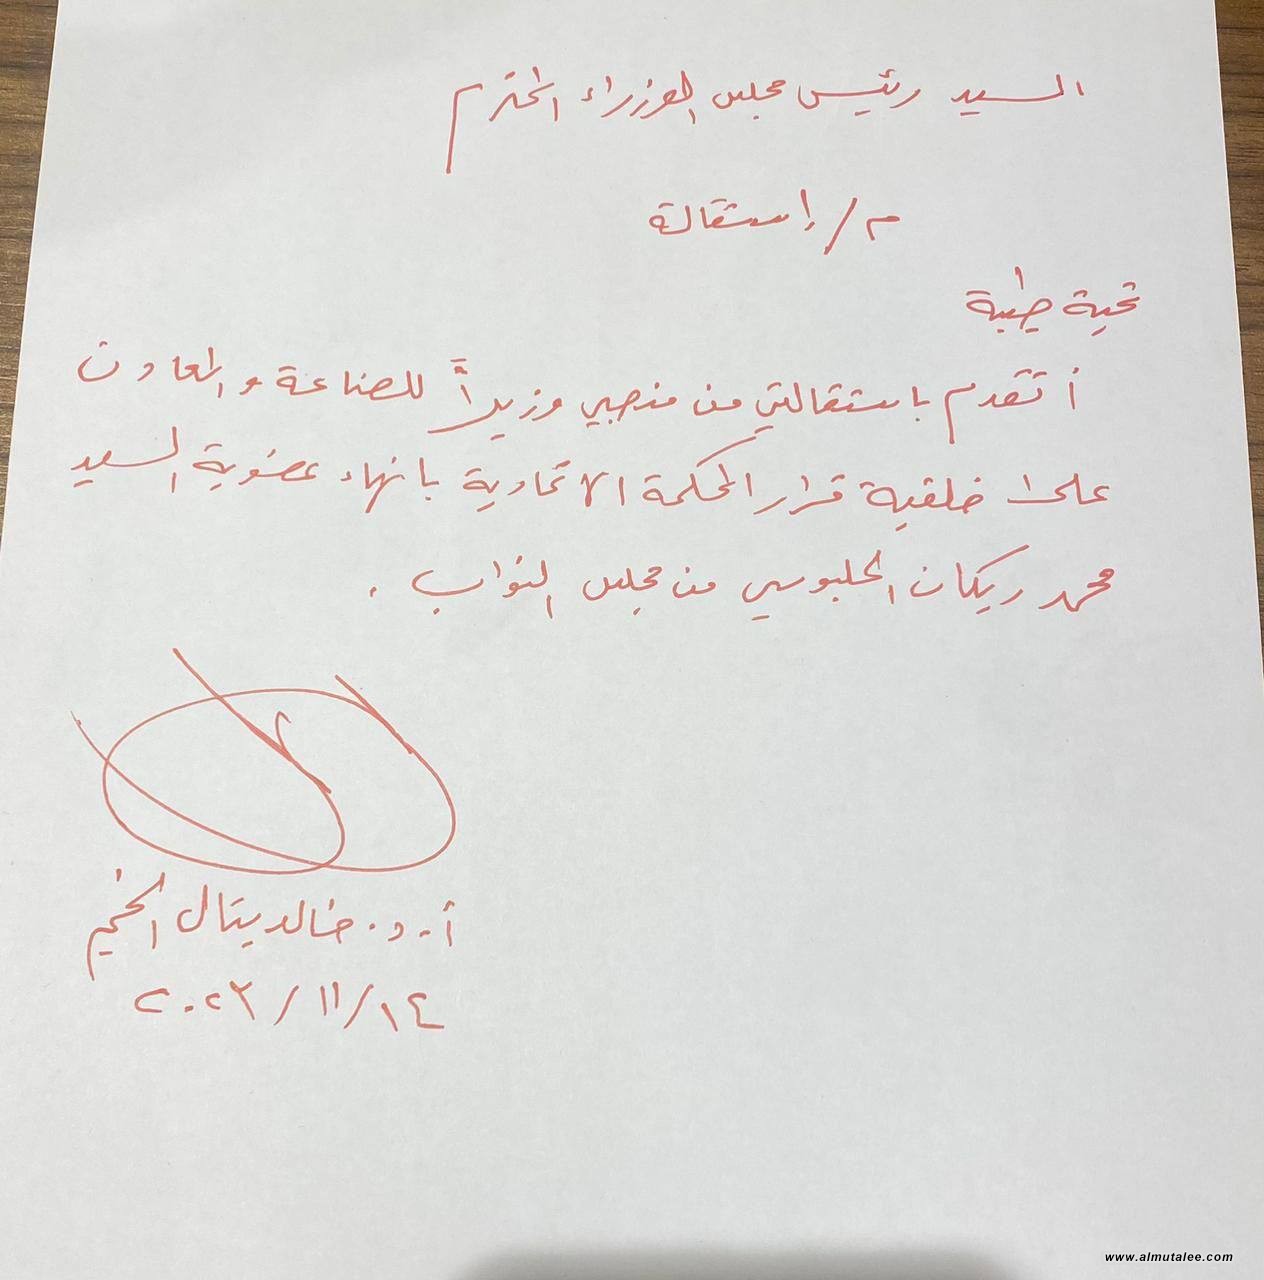 السيد رئيس مجلس الوزراء المحترم
م/ إستقالة
تحية طيبة
أتقدم باستقالتي من منصبي وزيراً للصناعة والمعادن
على خلفية قرار المحكمة الاتحادية بانهاء عضوية السيد
محمد ريكان الحلبوسي من مجلس النواب .
أ.د. خالد بتال النجم
٢٠٢٣/١١/١٤
www.almutalee.com